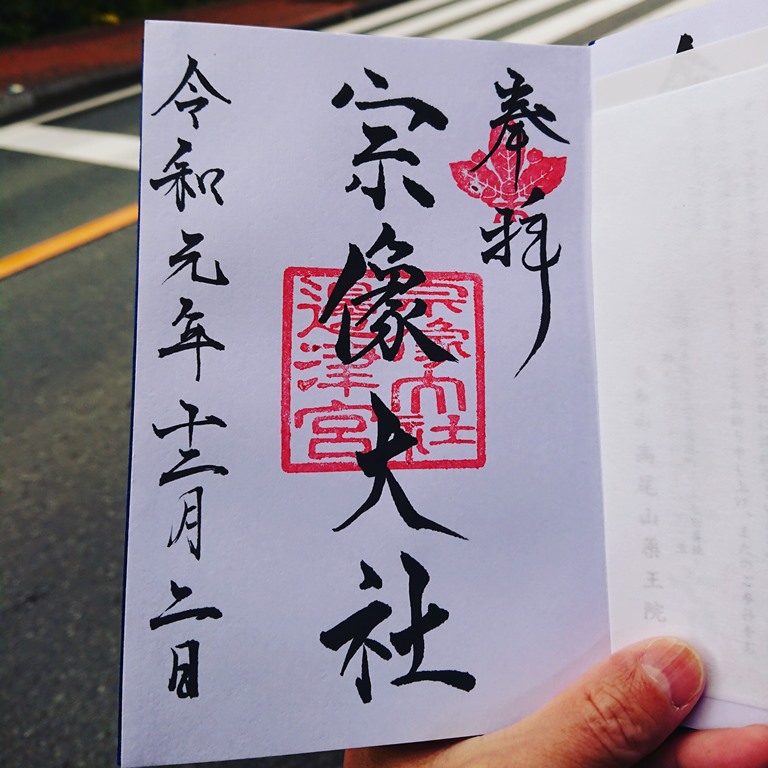 奉拝
宗像大社
令和元年十二月二日
宗像大社
邊津宮
高尾山薬王院